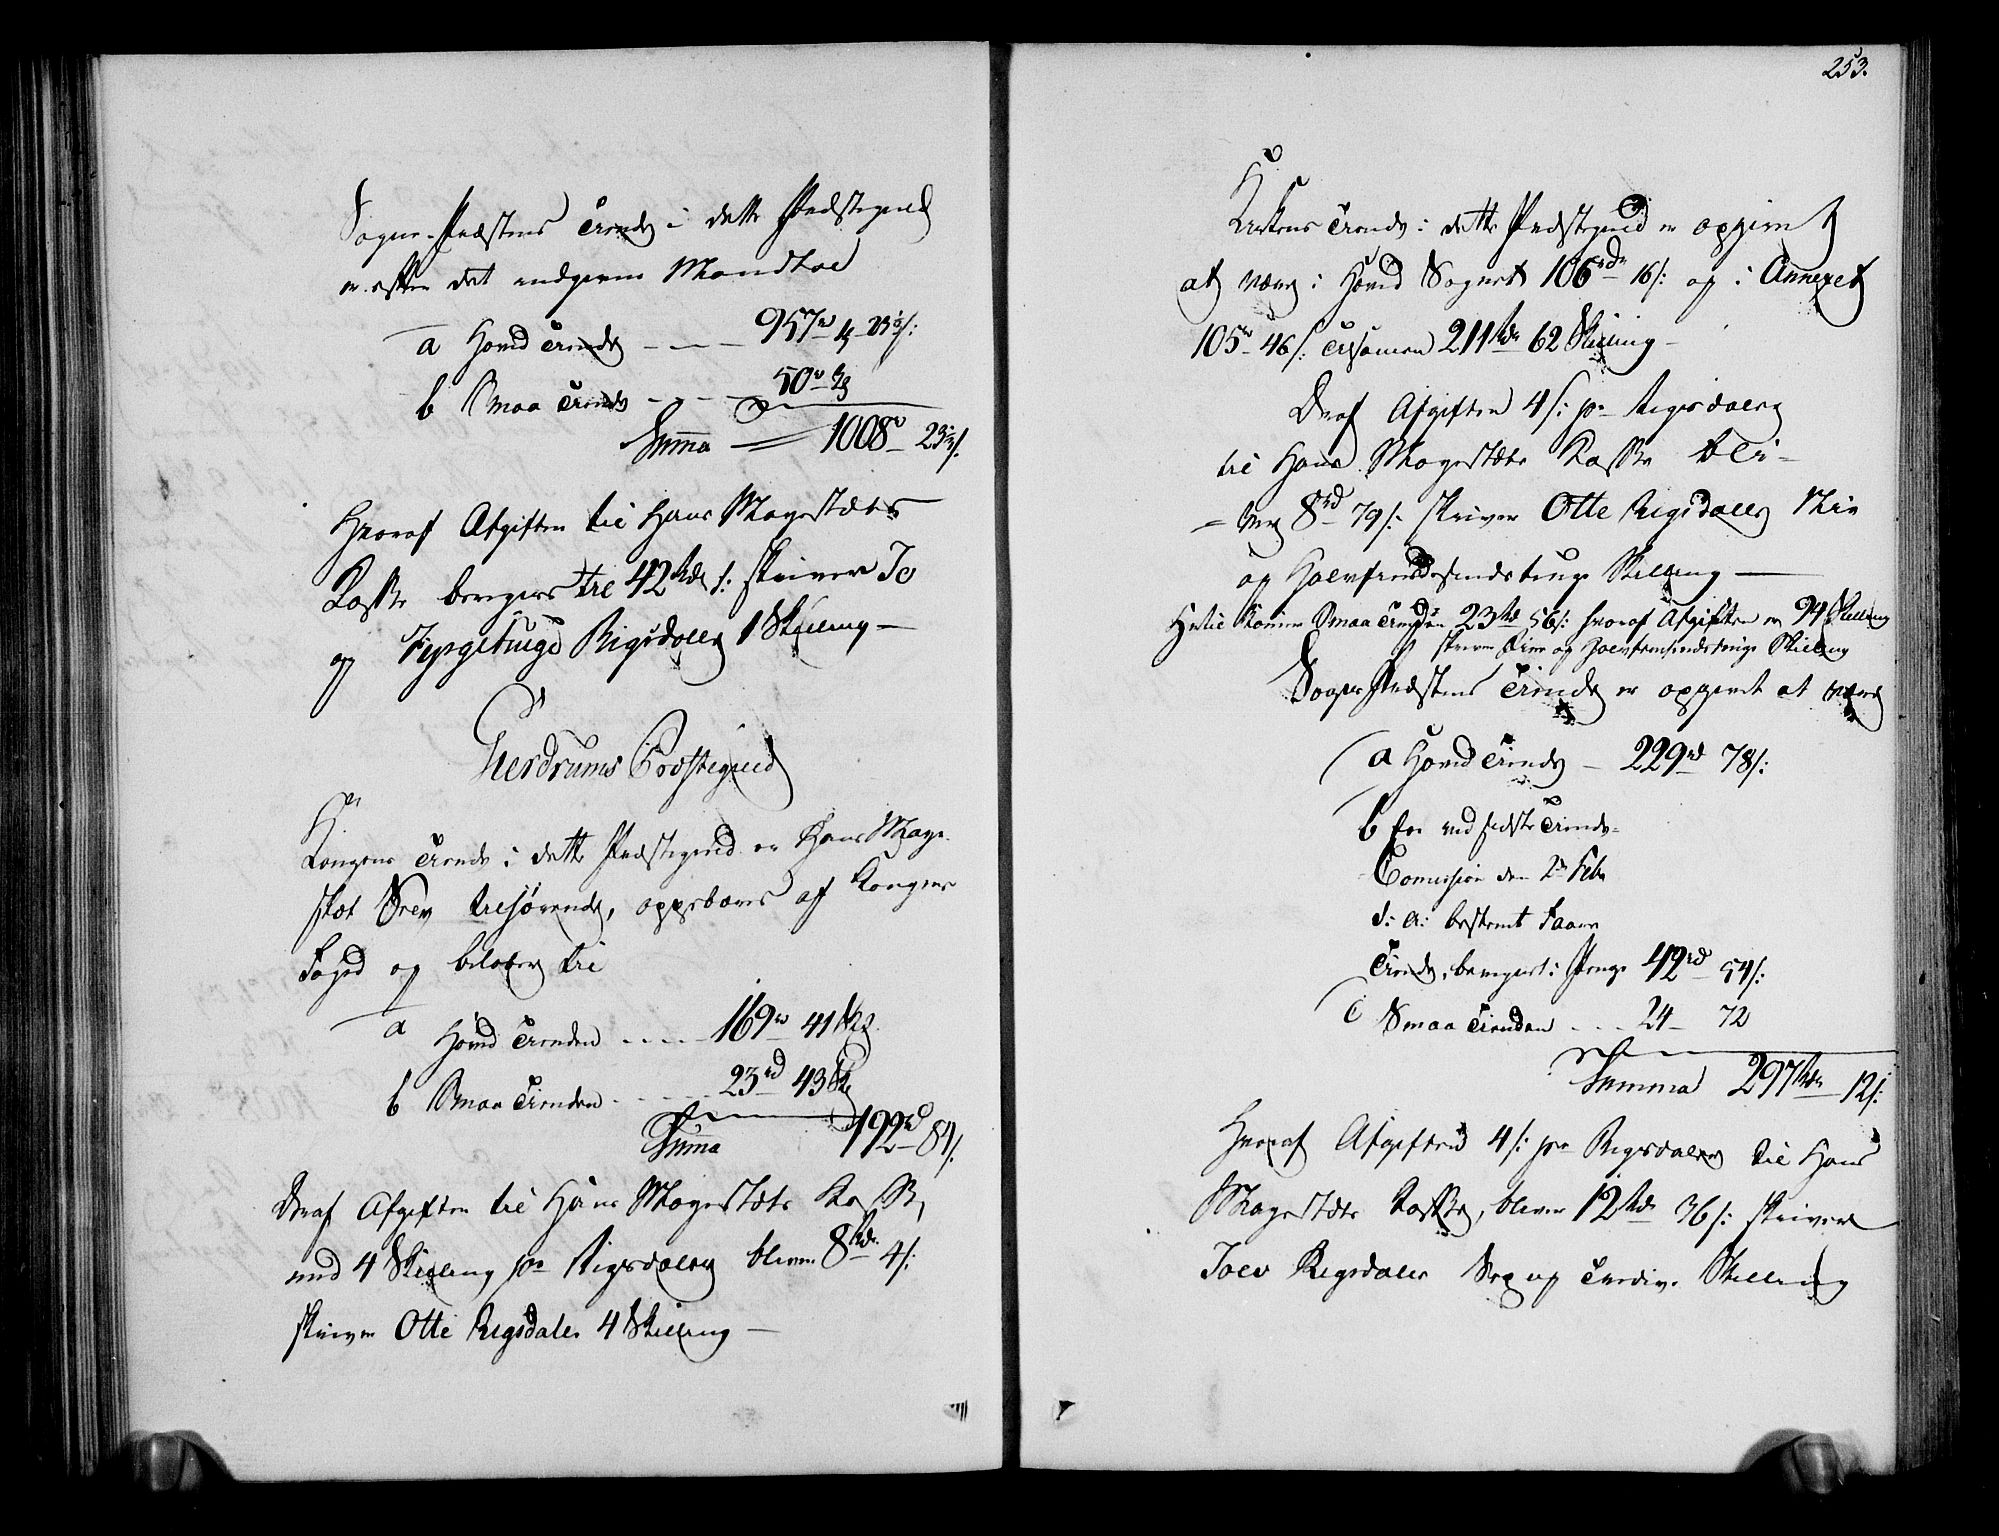 Sogne-Præstens Tiende i dette Præstegield
er efter det indgivne Mandtal
a Hoved Tiende – – – 957rd – 23 1/3 s:
b Smaa Tiende – – – 50rd
Summa = 1008rd 23 s.
Hvoraf Afgiften til Hans Majestæts
Kasse beregnes til 42 Rdr 1 s: skriver To
og Fyrgetiuge Rigsdaler 1 Skilling –
Gierdrums Præstegield
Kongens Tiende i dette Præstegield er Hans Maje-
stæt Selv tilhørende, oppebæres af Kongens
Foged og beløber til
a Hoved Tienden . . . . 169rd 41 Sk
b Smaa Tienden . . . . 23rd 43 Sk
Summa 192rd 84 s.
Deraf Afgiften til Hans Majestæts Kasse,
med 4 Skilling pr Rigsdaler bliver 8 Rdr. 4 s:
skriver Otte Rigsdaler 4 Skilling –
253.
Kirkens Tiende i dette Præstegield er opgivet
at være i Hoved Sognet 106rdr 16 s: og i Annexet
105rd 46 s: Tilsamen 211 Rdr 62 Skilling –
Deraf Afgiften 4 s: pr Rigsdaler
til Hans Majestæts Kasse bli-
= ver 8rd 79 s: skriver Otte Rigsdaler Nie
og Halvfierdesindstiuge Skilling –
Hertil kommer Smaa Tienden 23 Rd 56 s: hvoraf Afgiften er 94 Skilling
skriver Fire og Halvfemsindstiuge Skilling
Sogne Præstens Tiende er opgivet at være
a Hoved Tiende – 229rd 78 s:
b En ved sidste Tiende-
Comission den 2de Febr
d: a: bestemt
Tiende, beregnet i Penge 42rd 54 s:
c Smaa Tienden . . . 24 – 72
Summa 297 Rdr 12 s:
Hvoraf Afgiften 4 s: pr Rigsdaler til Hans
Majestæts Kasse, bliver 12 Rdr 36 s: skriver
Tolv Rigsdaler Sex og Tredive Skilling